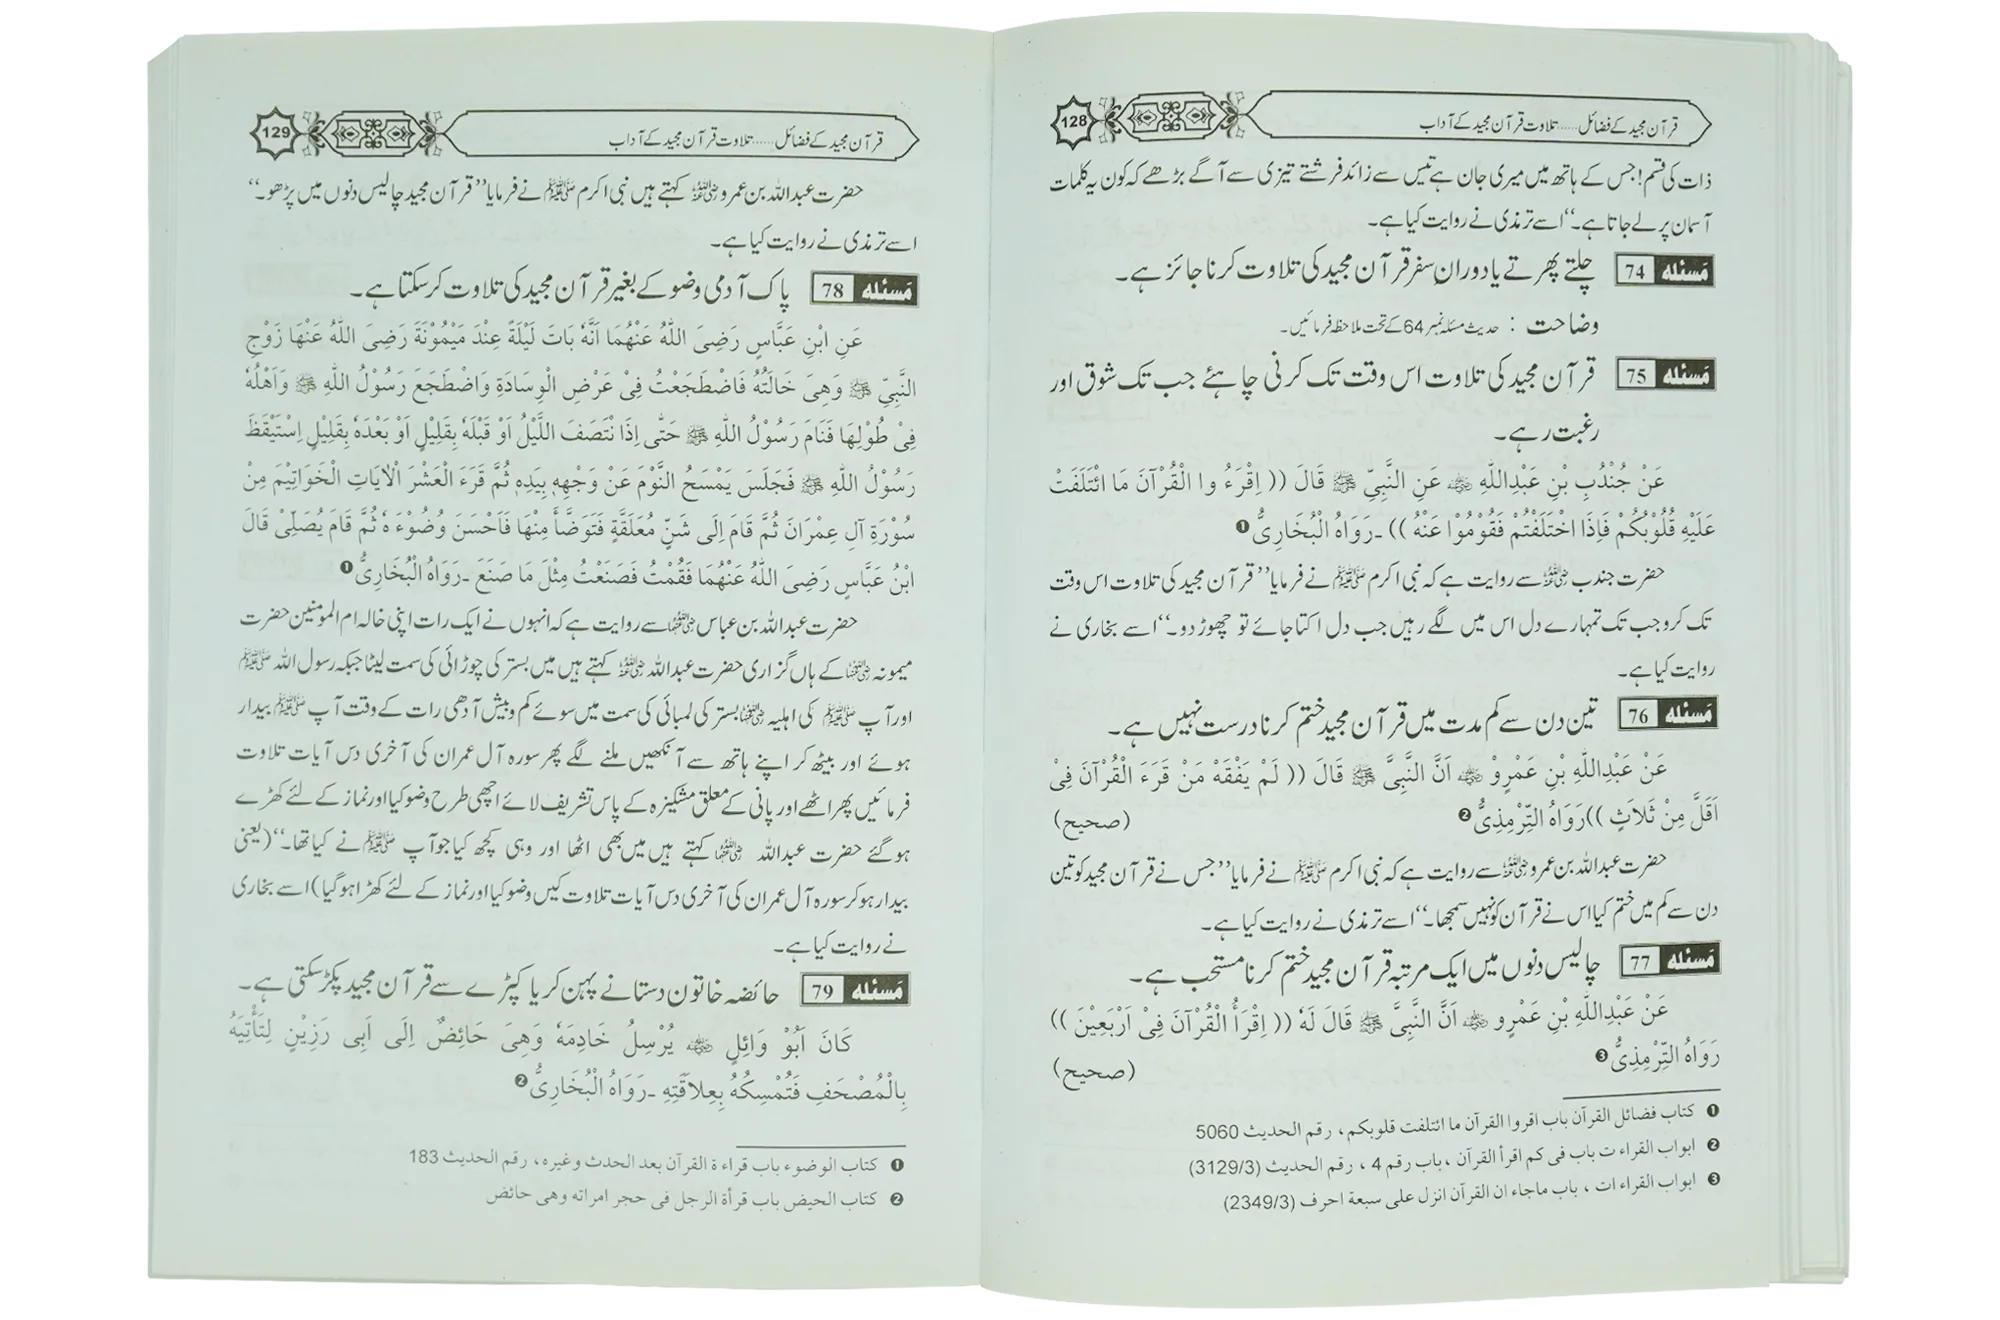 قرآن مجید کے فضائل......تلاوت قرآن مجید کے آداب
128
ذات کی قسم! جس کے ہاتھ میں میری جان ہے تیس سے زائد فرشتے تیزی سے آگے بڑھے کہ کون یہ کلمات
آسمان پر لے جاتا ہے۔‘‘ اسے ترمذی نے روایت کیا ہے۔
مَسئله 74 چلتے پھرتے یا دورانِ سفر قرآن مجید کی تلاوت کرنا جائز ہے۔
وضاحت : حدیث مسئلہ نمبر 64 کے تحت ملاحظہ فرمائیں۔
مَسئله 75 قرآن مجید کی تلاوت اس وقت تک کرنی چاہئے جب تک شوق اور
رغبت رہے۔
عَنْ جُنْدُبِ بْنِ عَبْدِاللّٰهِ ﷺ عَنِ النَّبِيِّ ﷺ قَالَ (( اِقْرَءُ وا الْقُرْآنَ مَا ائْتَلَفَتْ
عَلَيْهِ قُلُوْبُكُمْ فَاِذَا اخْتَلَفْتُمْ فَقُوْمُوْا عَنْهُ )) ۔رَوَاهُ الْبُخَارِىُّ ❶
حضرت جندب رضی اللہ عنہ سے روایت ہے کہ نبی اکرم ﷺ نے فرمایا ’’قرآن مجید کی تلاوت اس وقت
تک کرو جب تک تمہارے دل اس میں لگے رہیں جب دل اکتا جائے تو چھوڑ دو۔‘‘ اسے بخاری نے
روایت کیا ہے۔
مَسئله 76 تین دن سے کم مدت میں قرآن مجید ختم کرنا درست نہیں ہے۔
عَنْ عَبْدِاللّٰهِ بْنِ عَمْرٍوْ رضی اللہ عنہ اَنَّ النَّبِىَّ ﷺ قَالَ (( لَمْ يَفْقَهْ مَنْ قَرَءَ الْقُرْآنَ فِىْ
اَقَلَّ مِنْ ثَلاَثٍ ))رَوَاهُ التِّرْمِذِىُّ ❷ (صحيح)
حضرت عبداللہ بن عمرو رضی اللہ عنہ سے روایت ہے کہ نبی اکرم ﷺ نے فرمایا ’’جس نے قرآن مجید کو تین
دن سے کم میں ختم کیا اس نے قرآن کو نہیں سمجھا۔‘‘ اسے ترمذی نے روایت کیا ہے۔
مَسئله 77 چالیس دنوں میں ایک مرتبہ قرآن مجید ختم کرنا مستحب ہے۔
عَنْ عَبْدِاللّٰهِ بْنِ عَمْرٍو رضی اللہ عنہ اَنَّ النَّبِىَّ ﷺ قَالَ لَهٗ (( اِقْرَأْ الْقُرْآنَ فِىْ اَرْبَعِيْنَ ))
رَوَاهُ التِّرْمِذِىُّ ❸ (صحيح)
❶ كتاب فضائل القرآن باب اقروا القرآن ما ائتلفت قلوبكم، رقم الحديث 5060
❷ ابواب القراء ت باب فى كم اقرأ القرآن ،باب رقم 4 ، رقم الحديث (3129/3)
❸ ابواب القراء ات ، باب ماجاء ان القرآن انزل على سبعة احرف (2349/3)
قرآن مجید کے فضائل......تلاوت قرآن مجید کے آداب
129
حضرت عبداللہ بن عمرو رضی اللہ عنہ کہتے ہیں نبی اکرم ﷺ نے فرمایا ’’قرآن مجید چالیس دنوں میں پڑھو۔‘‘
اسے ترمذی نے روایت کیا ہے۔
مَسئله 78 پاک آدمی وضو کے بغیر قرآن مجید کی تلاوت کر سکتا ہے۔
عَنِ ابْنِ عَبَّاسٍ رَضِىَ اللّٰهُ عَنْهُمَا اَنَّهٗ بَاتَ لَيْلَةً عِنْدَ مَيْمُوْنَةَ رَضِىَ اللّٰهُ عَنْهَا زَوْجِ
النَّبِىِّ ﷺ وَهِىَ خَالَتُهٗ فَاضْطَجَعْتُ فِىْ عَرْضِ الْوِسَادَةِ وَاضْطَجَعَ رَسُوْلُ اللّٰهِ ﷺ وَاَهْلُهٗ
فِىْ طُوْلِهَا فَنَامَ رَسُوْلُ اللّٰهِ ﷺ حَتّٰى اِذَا نْتَصَفَ اللَّيْلُ اَوْ قَبْلَهٗ بِقَلِيْلٍ اَوْ بَعْدَهٗ بِقَلِيْلٍ اِسْتَيْقَظَ
رَسُوْلُ اللّٰهِ ﷺ فَجَلَسَ يَمْسَحُ النَّوْمَ عَنْ وَجْهِهٖ بِيَدِهٖ ثُمَّ قَرَءَ الْعَشْرَ الْاٰيَاتِ الْخَوَاتِيْمَ مِنْ
سُوْرَةِ آلِ عِمْرَانَ ثُمَّ قَامَ اِلَى شَنٍّ مُعَلَّقَةٍ فَتَوَضَّأَ مِنْهَا فَاَحْسَنَ وُضُوْءَ هٗ ثُمَّ قَامَ يُصَلِّىْ قَالَ
ابْنُ عَبَّاسٍ رَضِىَ اللّٰهُ عَنْهُمَا فَقُمْتُ فَصَنَعْتُ مِثْلَ مَا صَنَعَ ۔رَوَاهُ الْبُخَارِىُّ ❶
حضرت عبداللہ بن عباس رضی اللہ عنہما سے روایت ہے کہ انہوں نے ایک رات اپنی خالہ ام المومنین حضرت
میمونہ رضی اللہ عنہا کے ہاں گزاری حضرت عبداللہ رضی اللہ عنہ کہتے ہیں میں بستر کی چوڑائی کی سمت لیٹا جبکہ رسول اللہ ﷺ
اور آپ ﷺ کی اہلیہ رضی اللہ عنہا بستر کی لمبائی کی سمت میں سوئے کم و بیش آدھی رات کے وقت آپ ﷺ بیدار
ہوئے اور بیٹھ کر اپنے ہاتھ سے آنکھیں ملنے لگے پھر سورہ آل عمران کی آخری دس آیات تلاوت
فرمائیں پھر اٹھے اور پانی کے معلق مشکیزہ کے پاس تشریف لائے اچھی طرح وضو کیا اور نماز کے لئے کھڑے
ہو گئے حضرت عبداللہ رضی اللہ عنہ کہتے ہیں میں بھی اٹھا اور وہی کچھ کیا جو آپ ﷺ نے کیا تھا۔‘‘ (یعنی
بیدار ہو کر سورہ آل عمران کی آخری دس آیات تلاوت کیں وضو کیا اور نماز کے لئے کھڑا ہو گیا) اسے بخاری
نے روایت کیا ہے۔
مَسئله 79 حائضہ خاتون دستانے پہن کر یا کپڑے سے قرآن مجید پکڑ سکتی ہے۔
كَانَ اَبُوْ وَائِلٍ رضی اللہ عنہ يُرْسِلُ خَادِمَهٗ وَهِىَ حَائِضٌ اِلَى اَبِى رَزِيْنٍ لِتَأْتِيَهُ
بِالْمُصْحَفِ فَتُمْسِكُهُ بِعِلاَقَتِهِ ۔رَوَاهُ الْبُخَارِىُّ ❷
❶ كتاب الوضوء باب قراء ة القرآن بعد الحدث وغيره، رقم الحديث 183
❷ كتاب الحيض باب قرأة الرجل فى حجر امراته وهى حائض